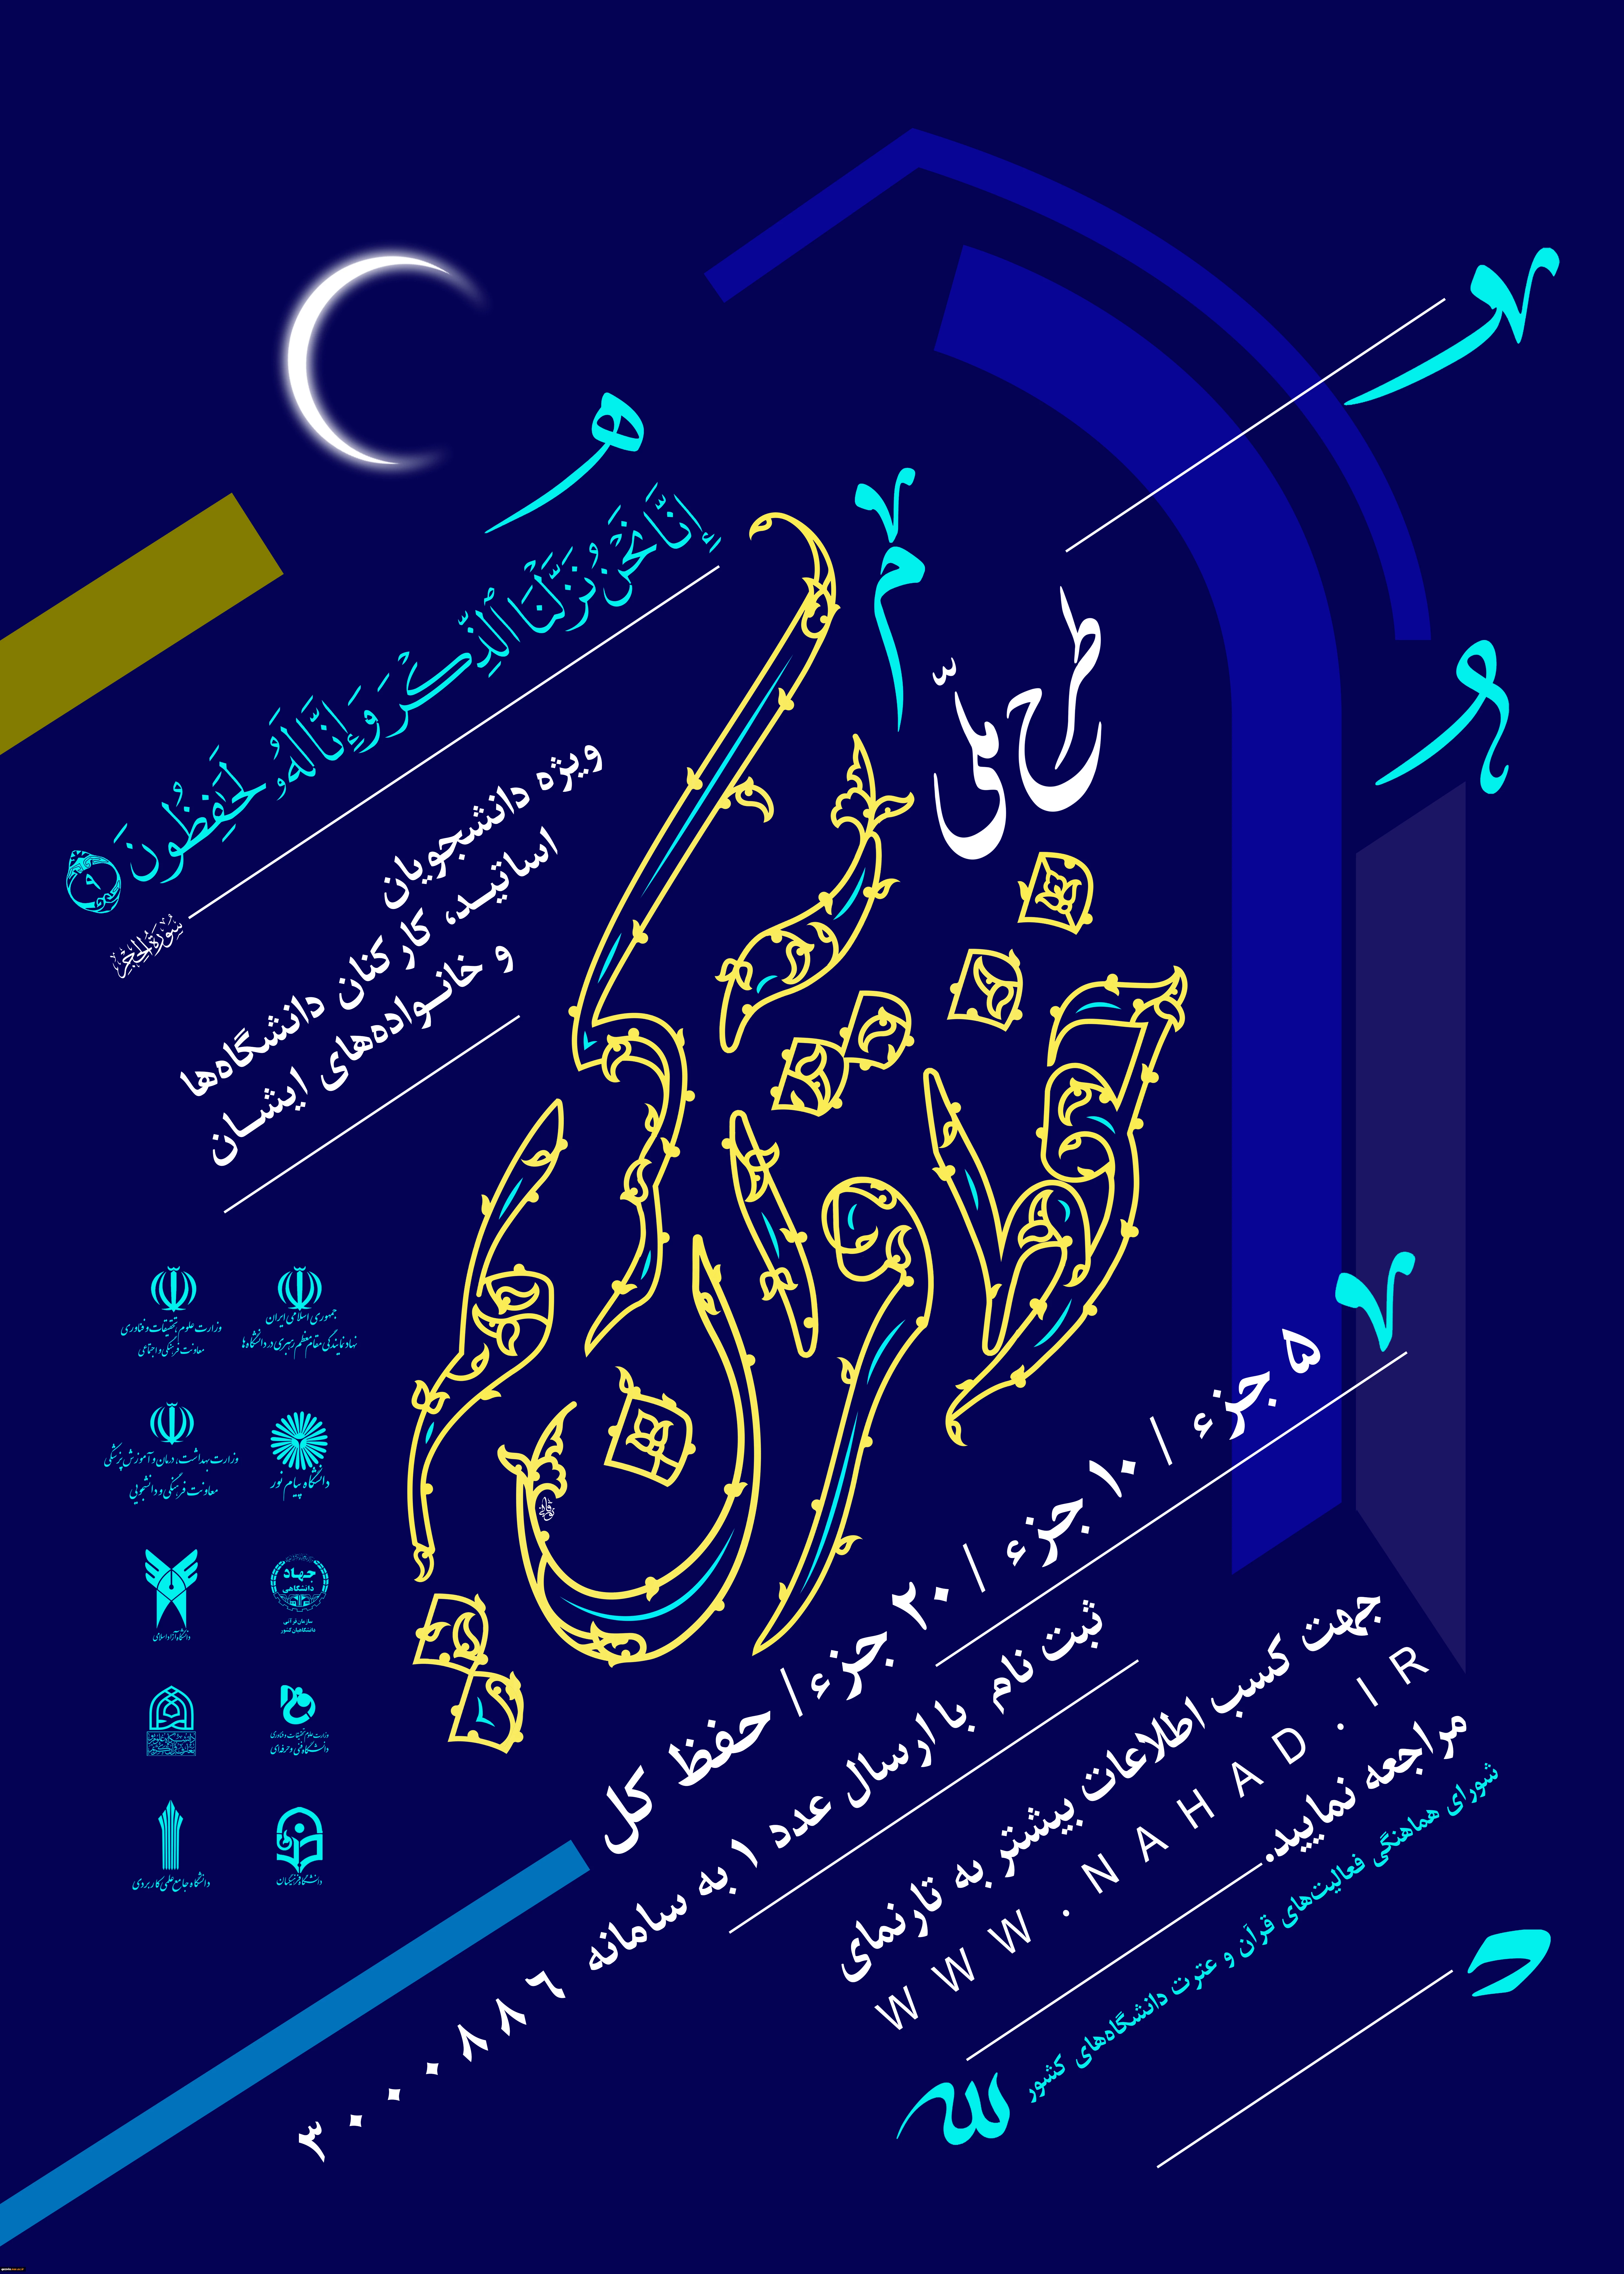 إِنَّا نَحْنُ نَزَّلْنَا ٱلذِّكْرَ وَإِنَّا لَهُۥ لَحَٰفِظُونَ ۹
سورة الحجر
طرح ملّی
حفظ قرآن کریم
ویژه دانشجویان
اساتیـد، کارکنان دانشگاه‌ها
و خانـواده‌های ایشـان
جمهوری اسلامی ایران
نهاد نمایندگی مقام معظم رهبری در دانشگاه‌ها
وزارت علوم، تحقیقات و فناوری
معاونت فرهنگی و اجتماعی
دانشگاه پیام نور
وزارت بهداشت، درمان و آموزش پزشکی
معاونت فرهنگی و دانشجویی
جهاد
دانشگاهی
سازمان قرآنی
دانشگاهیان کشور
دانشگاه آزاد اسلامی
وزارت علوم، تحقیقات و فناوری
دانشگاه فنی و حرفه‌ای
دانشگاه فرهنگیان
دانشگاه جامع علمی کاربردی
۵ جزء / ۱۰ جزء / ۲۰ جزء / حفظ کل
ثبت نام با ارسال عدد ۱ به سامانه ۳۰۰۰۸۸۶
جهت کسب اطلاعات بیشتر به تارنمای
WWW.NAHAD.IR
مراجعه نمایید.
شورای هماهنگی فعالیت‌های قرآن و عترت دانشگاه‌های کشور